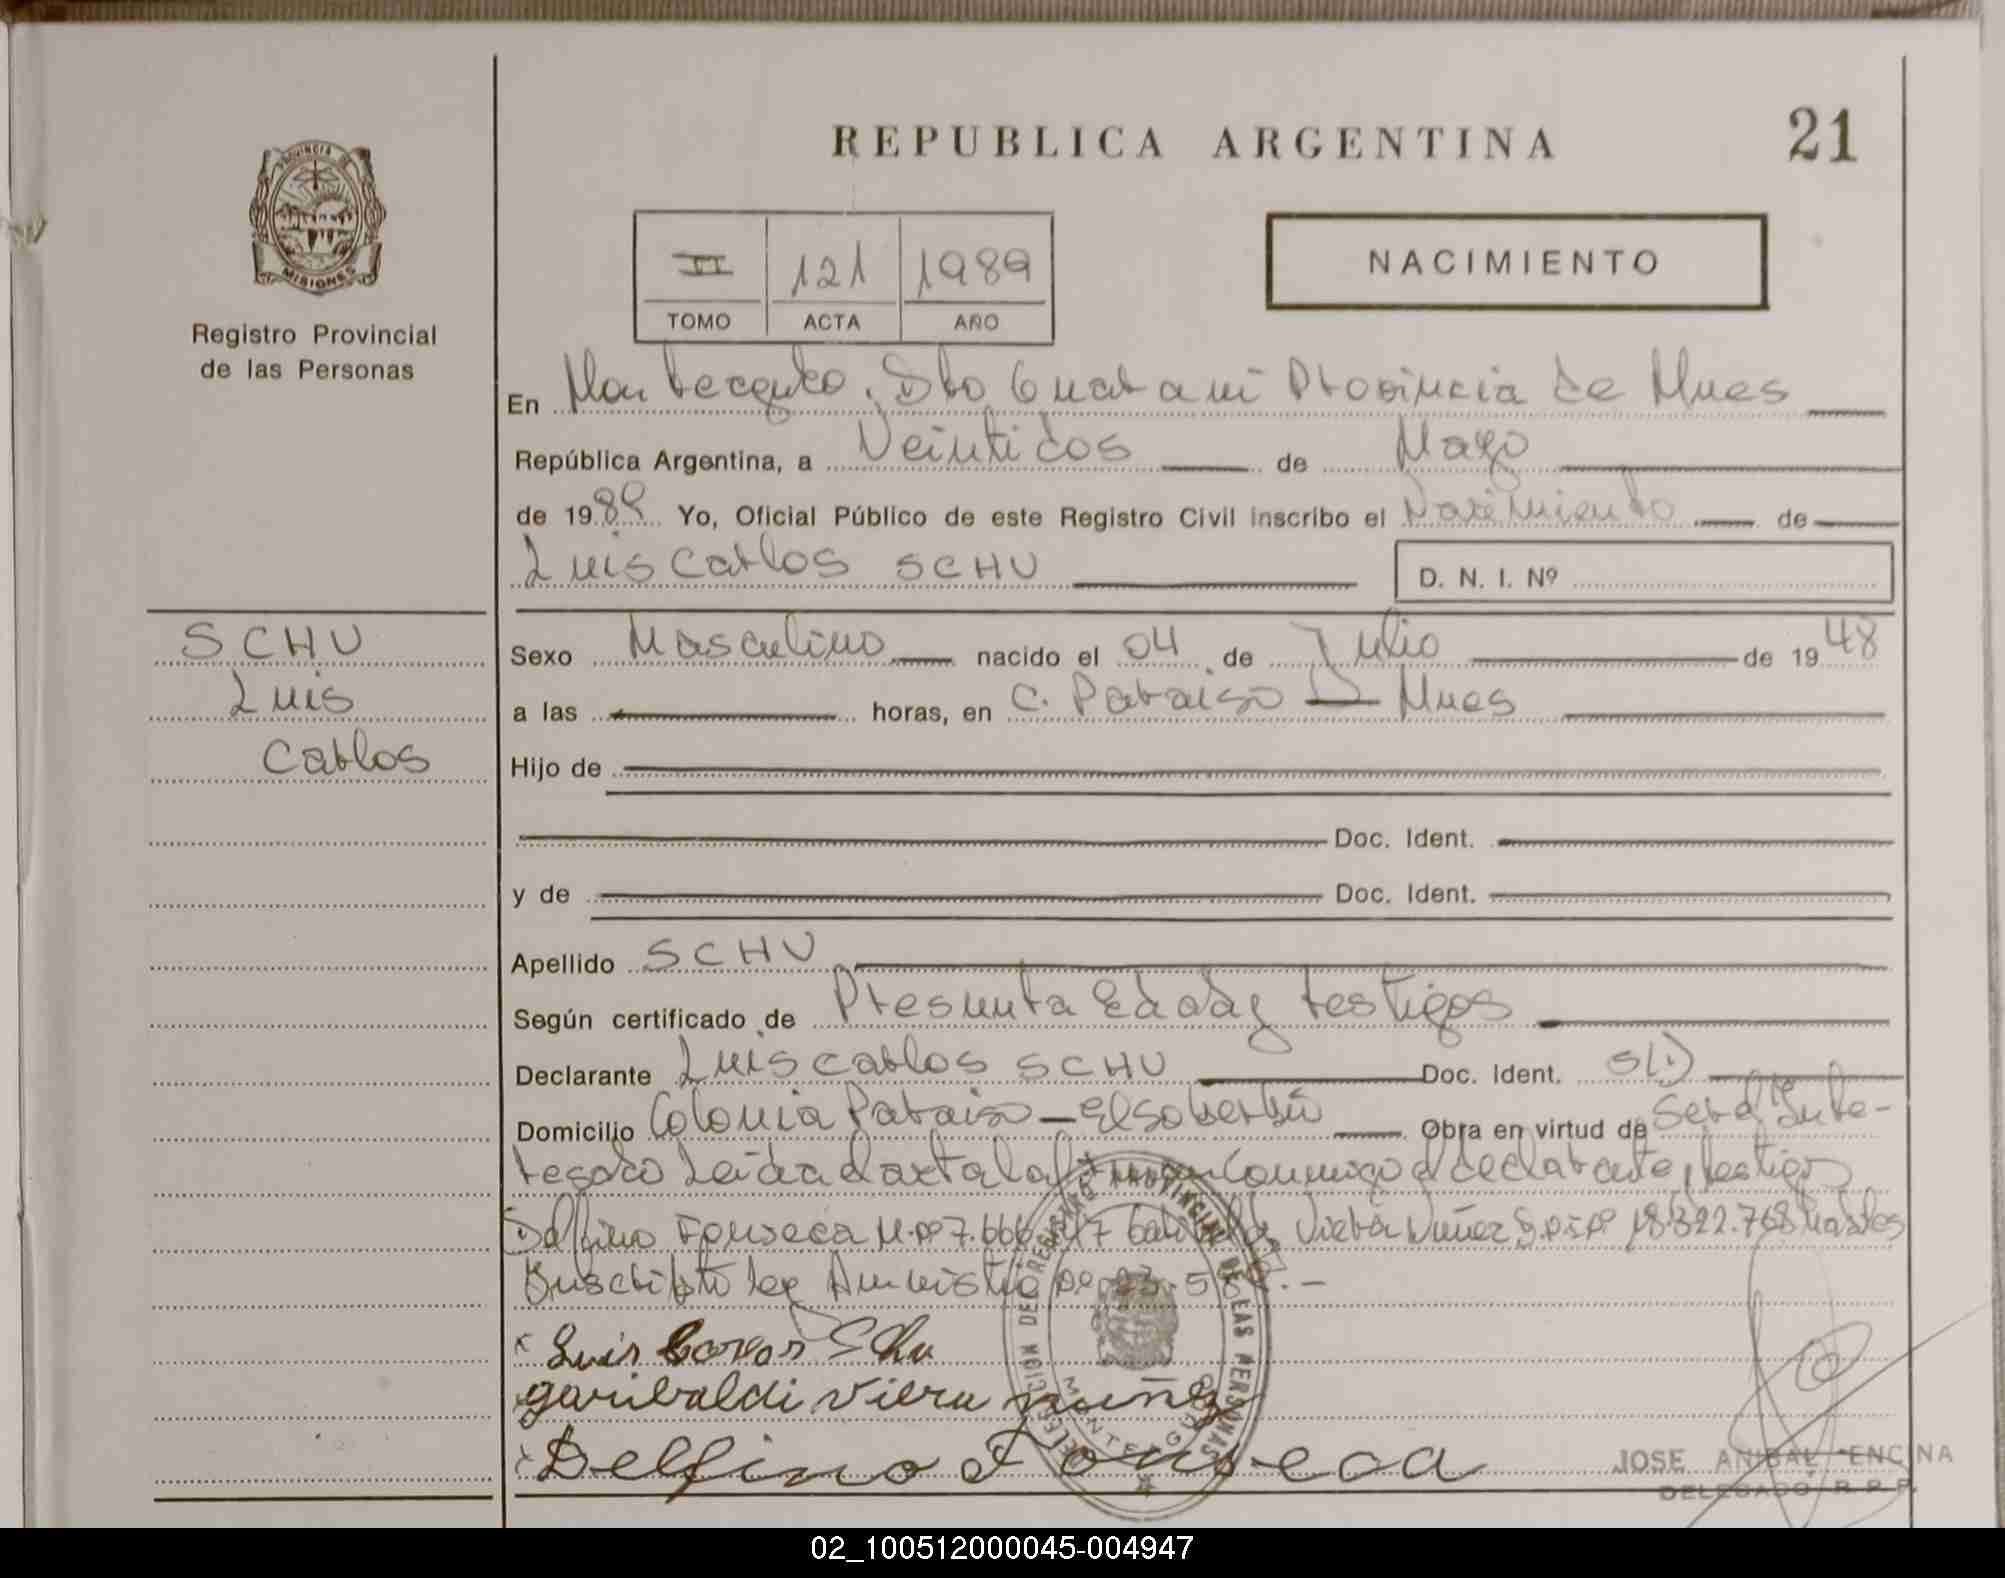 REPUBLICA ARGENTINA
21
PROVINCIA DE
MISIONES
Registro Provincial
de las Personas
II 121 1989
TOMO ACTA AÑO
NACIMIENTO
En Monteagudo. Dto Guarani Provincia de Mnes
República Argentina, a Veintidos de Mayo
de 1989 Yo, Oficial Público de este Registro Civil inscribo el Nacimiento de
Luis Carlos SCHU D. N. I. Nº
SCHU
Luis
Carlos
Sexo Masculino nacido el 04 de Julio de 1948
a las horas, en C. Paraiso Mnes
Hijo de
Doc. Ident.
y de Doc. Ident.
Apellido SCHU
Según certificado de Presunta Edad y testigos
Declarante Luis Carlos SCHU Doc. Ident.
Domicilio Colonia Paraiso - El soberbio Obra en virtud de Ser el Inte-
resado Leida el acta la firman Conmigo el declarante, testigos
Delfino Fonseca M. nº 7.666. Viera Nuñez D.N.I nº 18.322.768
Inscripto ley Amnistia nº
x Luis Carlos Schu
garibaldi viera nuñez
Delfino Fonseca
DELEGACION DEL REGISTRO PROVINCIAL DE LAS PERSONAS
MONTEAGUDO
JOSE ANIBAL ENCINA
DELEGADO R.P.P.
02_100512000045-004947